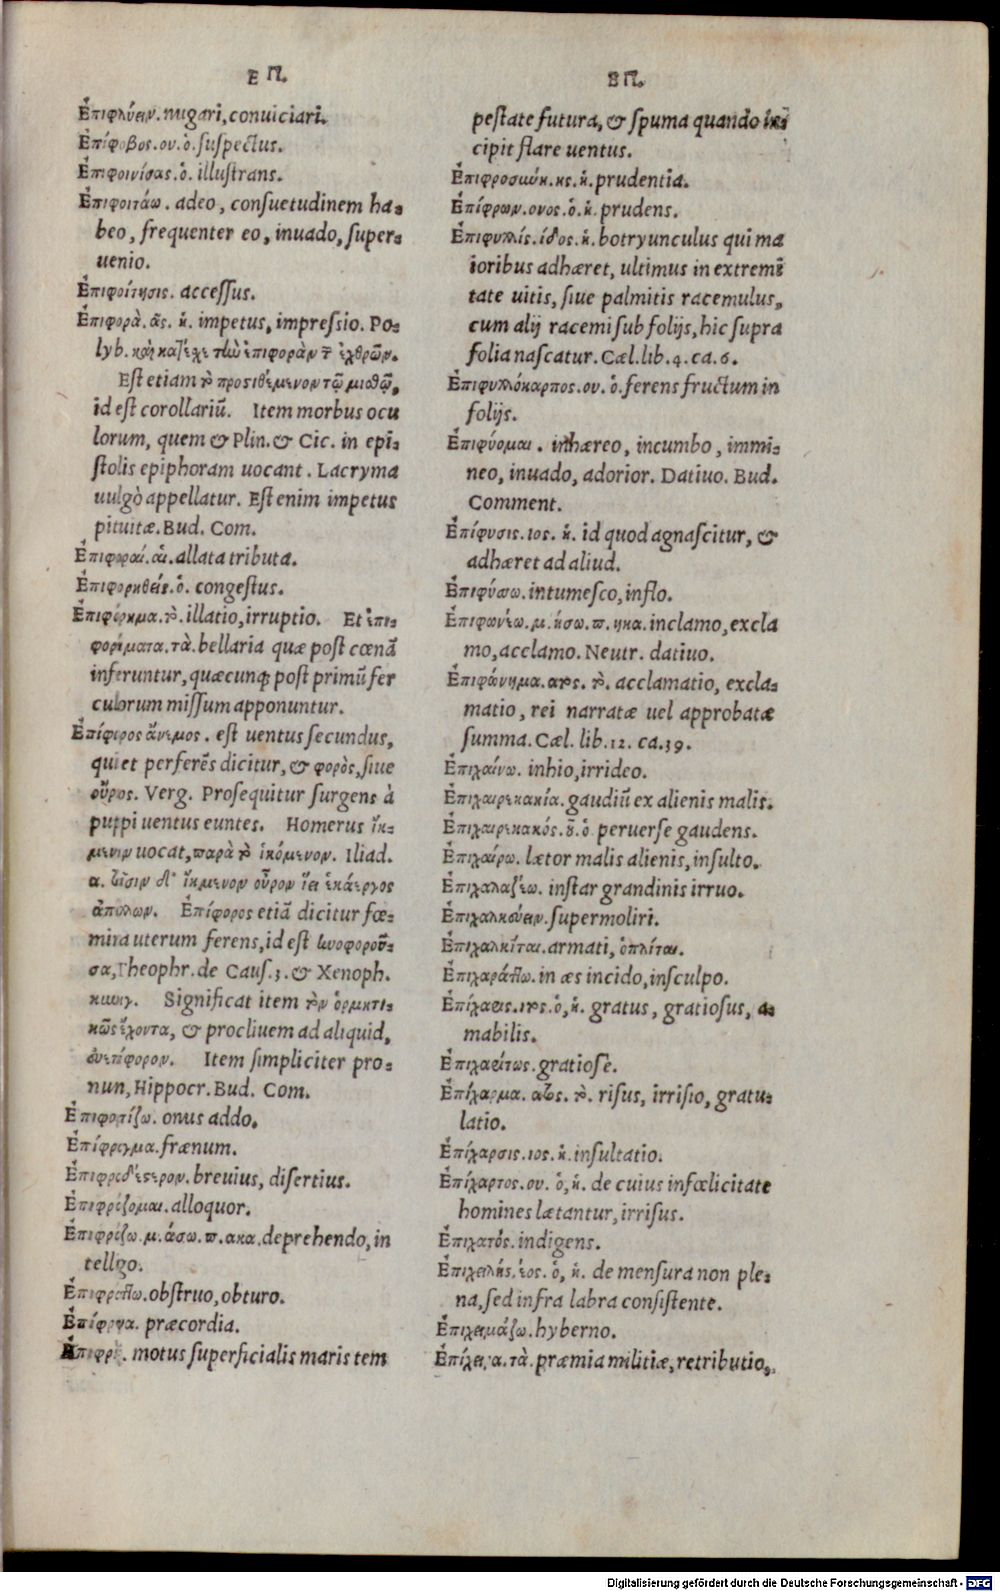 ΕΠ.
Ἐπιφλύειν. nugari, conuiciari.
Ἐπίφοβος. ου. ὁ. suspectus.
Ἐπιφοινίσας. ὁ. illustrans.
Ἐπιφοιτάω. adeo, consuetudinem ha-
beo, frequenter eo, inuado, super-
uenio.
Ἐπιφοίτησις. accessus.
Ἐπιφορὰ. ᾶς. ἡ. impetus, impressio. Po-
lyb. καὶ κατέχε τὴν ἐπιφορὰν τ ἐχθρῶν.
Est etiam τὸ προστιθέμενον τῷ μισθῷ,
id est corollariū. Item morbus ocu
lorum, quem & Plin. & Cic. in epi-
stolis epiphoram uocant. Lacryma
uulgò appellatur. Est enim impetus
pituitæ. Bud. Com.
Ἐπιφοραί. αἱ. allata tributa.
Ἐπιφορηθείς. ὁ. congestus.
Ἐπιφόρημα. τὸ. illatio, irruptio. Et ἐπι-
φορήματα. τὰ. bellaria quæ post cœnā
inferuntur, quæcunq; post primū fer
culorum missum apponuntur.
Ἐπίφορος ἄνεμος. est uentus secundus,
qui et perferēs dicitur, & φορὸς, siue
οὖρος. Verg. Prosequitur surgens à
puppi uentus euntes. Homerus ἴκ-
μενον uocat, παρὰ τὸ ἱκόμενον. Iliad.
α. τοῖσιν δ' ἴκμενον οὖρον ἵει ἑκάεργος
ἀπόλλων. Ἐπίφορος etiā dicitur fœ-
mina uterum ferens, id est κυοφοροῦ-
σα, Theophr. de Caus. 3. & Xenoph.
κυνηγ. Significat item τὸν ὁρμητι-
κῶς ἔχοντα, & procliuem ad aliquid,
εὐεπίφορον. Item simpliciter pro-
nun, Hippocr. Bud. Com.
Ἐπιφορτίζω. onus addo.
Ἐπίφραγμα. frænum.
Ἐπιφραδέστερον. breuius, disertius.
Ἐπιφράζομαι. alloquor.
Ἐπιφράζω. μ. άσω. π. ακα. deprehendo, in
tellgo.
Ἐπιφράττω. obstruo, obturo.
Ἐπίφρενα. præcordia.
motus superficialis maris tem
ΕΠ.
pestate futura, & spuma quando in-
cipit flare uentus.
Ἐπιφροσύνη. ης. ἡ. prudentia.
Ἐπίφρων. ονος. ὁ. ἡ. prudens.
Ἐπιφυλλίς. ίδος. ἡ. botryunculus qui ma
ioribus adhæret, ultimus in extremi
tate uitis, siue palmitis racemulus,
cum alij racemi sub folijs, hic supra
folia nascatur. Cæl. lib. 4. ca. 6.
Ἐπιφυλλόκαρπος. ου. ὁ. ferens fructum in
folijs.
Ἐπιφύομαι. inhæreo, incumbo, immi-
neo, inuado, adorior. Datiuo. Bud.
Comment.
Ἐπίφυσις. ιος. ἡ. id quod agnascitur, &
adhæret ad aliud.
Ἐπιφύσω. intumesco, inflo.
Ἐπιφωνέω. μ. ήσω. π. ηκα. inclamo, excla
mo, acclamo. Neutr. datiuo.
Ἐπιφώνημα. ατος. τὸ. acclamatio, excla-
matio, rei narratæ uel approbatæ
summa. Cæl. lib. 12. ca. 39.
Ἐπιχαίνω. inhio, irrideo.
Ἐπιχαιρεκακία. gaudiū ex alienis malis.
Ἐπιχαιρεκακός. οῦ. ὁ peruerse gaudens.
Ἐπιχαίρω. lætor malis alienis, insulto.
Ἐπιχαλαζέω. instar grandinis irruo.
Ἐπιχαλκεύειν. supermoliri.
Ἐπιχαλκίται. armati, ὁπλίται.
Ἐπιχαράττω. in æs incido, insculpo.
Ἐπίχαρις. ιτος. ὁ, ἡ. gratus, gratiosus, a-
mabilis.
Ἐπιχαρίτως. gratiosè.
Ἐπίχαρμα. ατος. τὸ. risus, irrisio, gratu-
latio.
Ἐπίχαρσις. ιος. ἡ. insultatio.
Ἐπίχαρτος. ου. ὁ, ἡ. de cuius infœlicitate
homines lætantur, irrisus.
Ἐπιχατός. indigens.
Ἐπιχειλής. έος. ὁ, ἡ. de mensura non ple-
na, sed infra labra consistente.
Ἐπιχειμάζω. hyberno.
Ἐπίχειρα. τὰ. præmia militiæ, retributio,
Digitalisierung gefördert durch die Deutsche Forschungsgemeinschaft - DFG